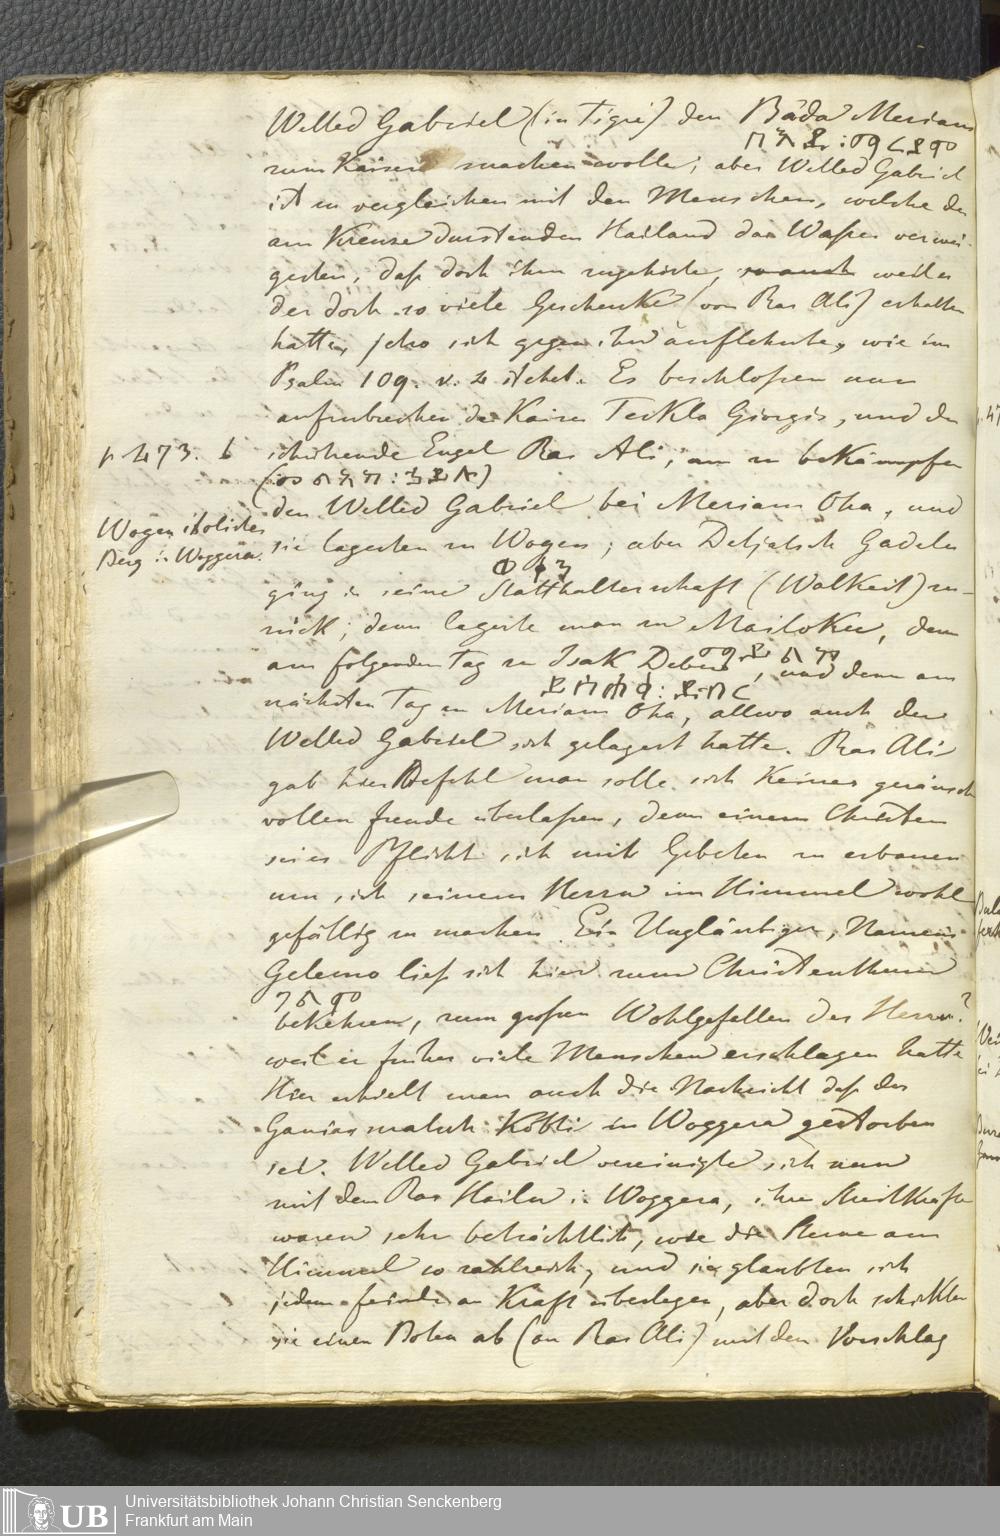 Welled Gabriel (in Tigre) den Bäda Meriam
zum Kaiser machen wolle; aber Welled Gabriel
ist zu vergleichen mit den Menschen, welche den
am Kreuze durstenden Heiland das Wasser verwei-
gerten, daß doch ihm zugehörte, so auch weil er
der doch so viele Geschenke (von Ras Ali) erhalten
hatte, jezo sich gegen ihn auflehnte, wie im
Psalm 109. v. 4 stehet. Es beschloßen nun
aufzubrechen der Kaiser Teckla Giorgis, und der
p 473. b
schützende Engel Ras Ali, um zu bekämpfen
den Welled Gabriel bei Meriam Oha, und
Wogen östlicher
Berg in Woggera.
sie lagerten zu Wogen; aber Detjatsch Gadelu
ging in seine Statthalterschaft (Walkeit) zu-
rück; denn lagerte man zu Mailoku, dann
am folgenden Tag zu Isak Deber, und denn am
nächsten Tag zu Meriam Oha, allwo auch der
Welled Gabriel sich gelagert hatte. Ras Ali
gab hier Befehl man solle sich keiner geräusch
vollen Freude überlaßen, denn einem Christen
sei es Pflicht sich mit Gebeten zu erbauen
um sich seinem Herrn im Himmel wohl
gefällig zu machen. Ein Ungläubiger, Namens
Gelemo ließ sich hier zum Christenthum
ገለሞ
bekehren, zum großen Wohlgefallen des Herrn?
weil er früher viele Menschen erschlagen hatte
Hier erhielt man auch die Nachricht daß der
Kobti in Woggera gestorben
sei. Welled Gabriel vereinigte sich nun
mit den Ras Hailu in Woggera, ihre Streitkräfte
waren sehr beträchtlich, wie die Sterne am
Himmel so zahlreich, und sie glaubten sich
jedem Feinde an Kraft überlegen, aber doch schickten
sie einen Boten ab (an Ras Ali) mit dem Vorschlag
UB
Universitätsbibliothek Johann Christian Senckenberg
Frankfurt am Main